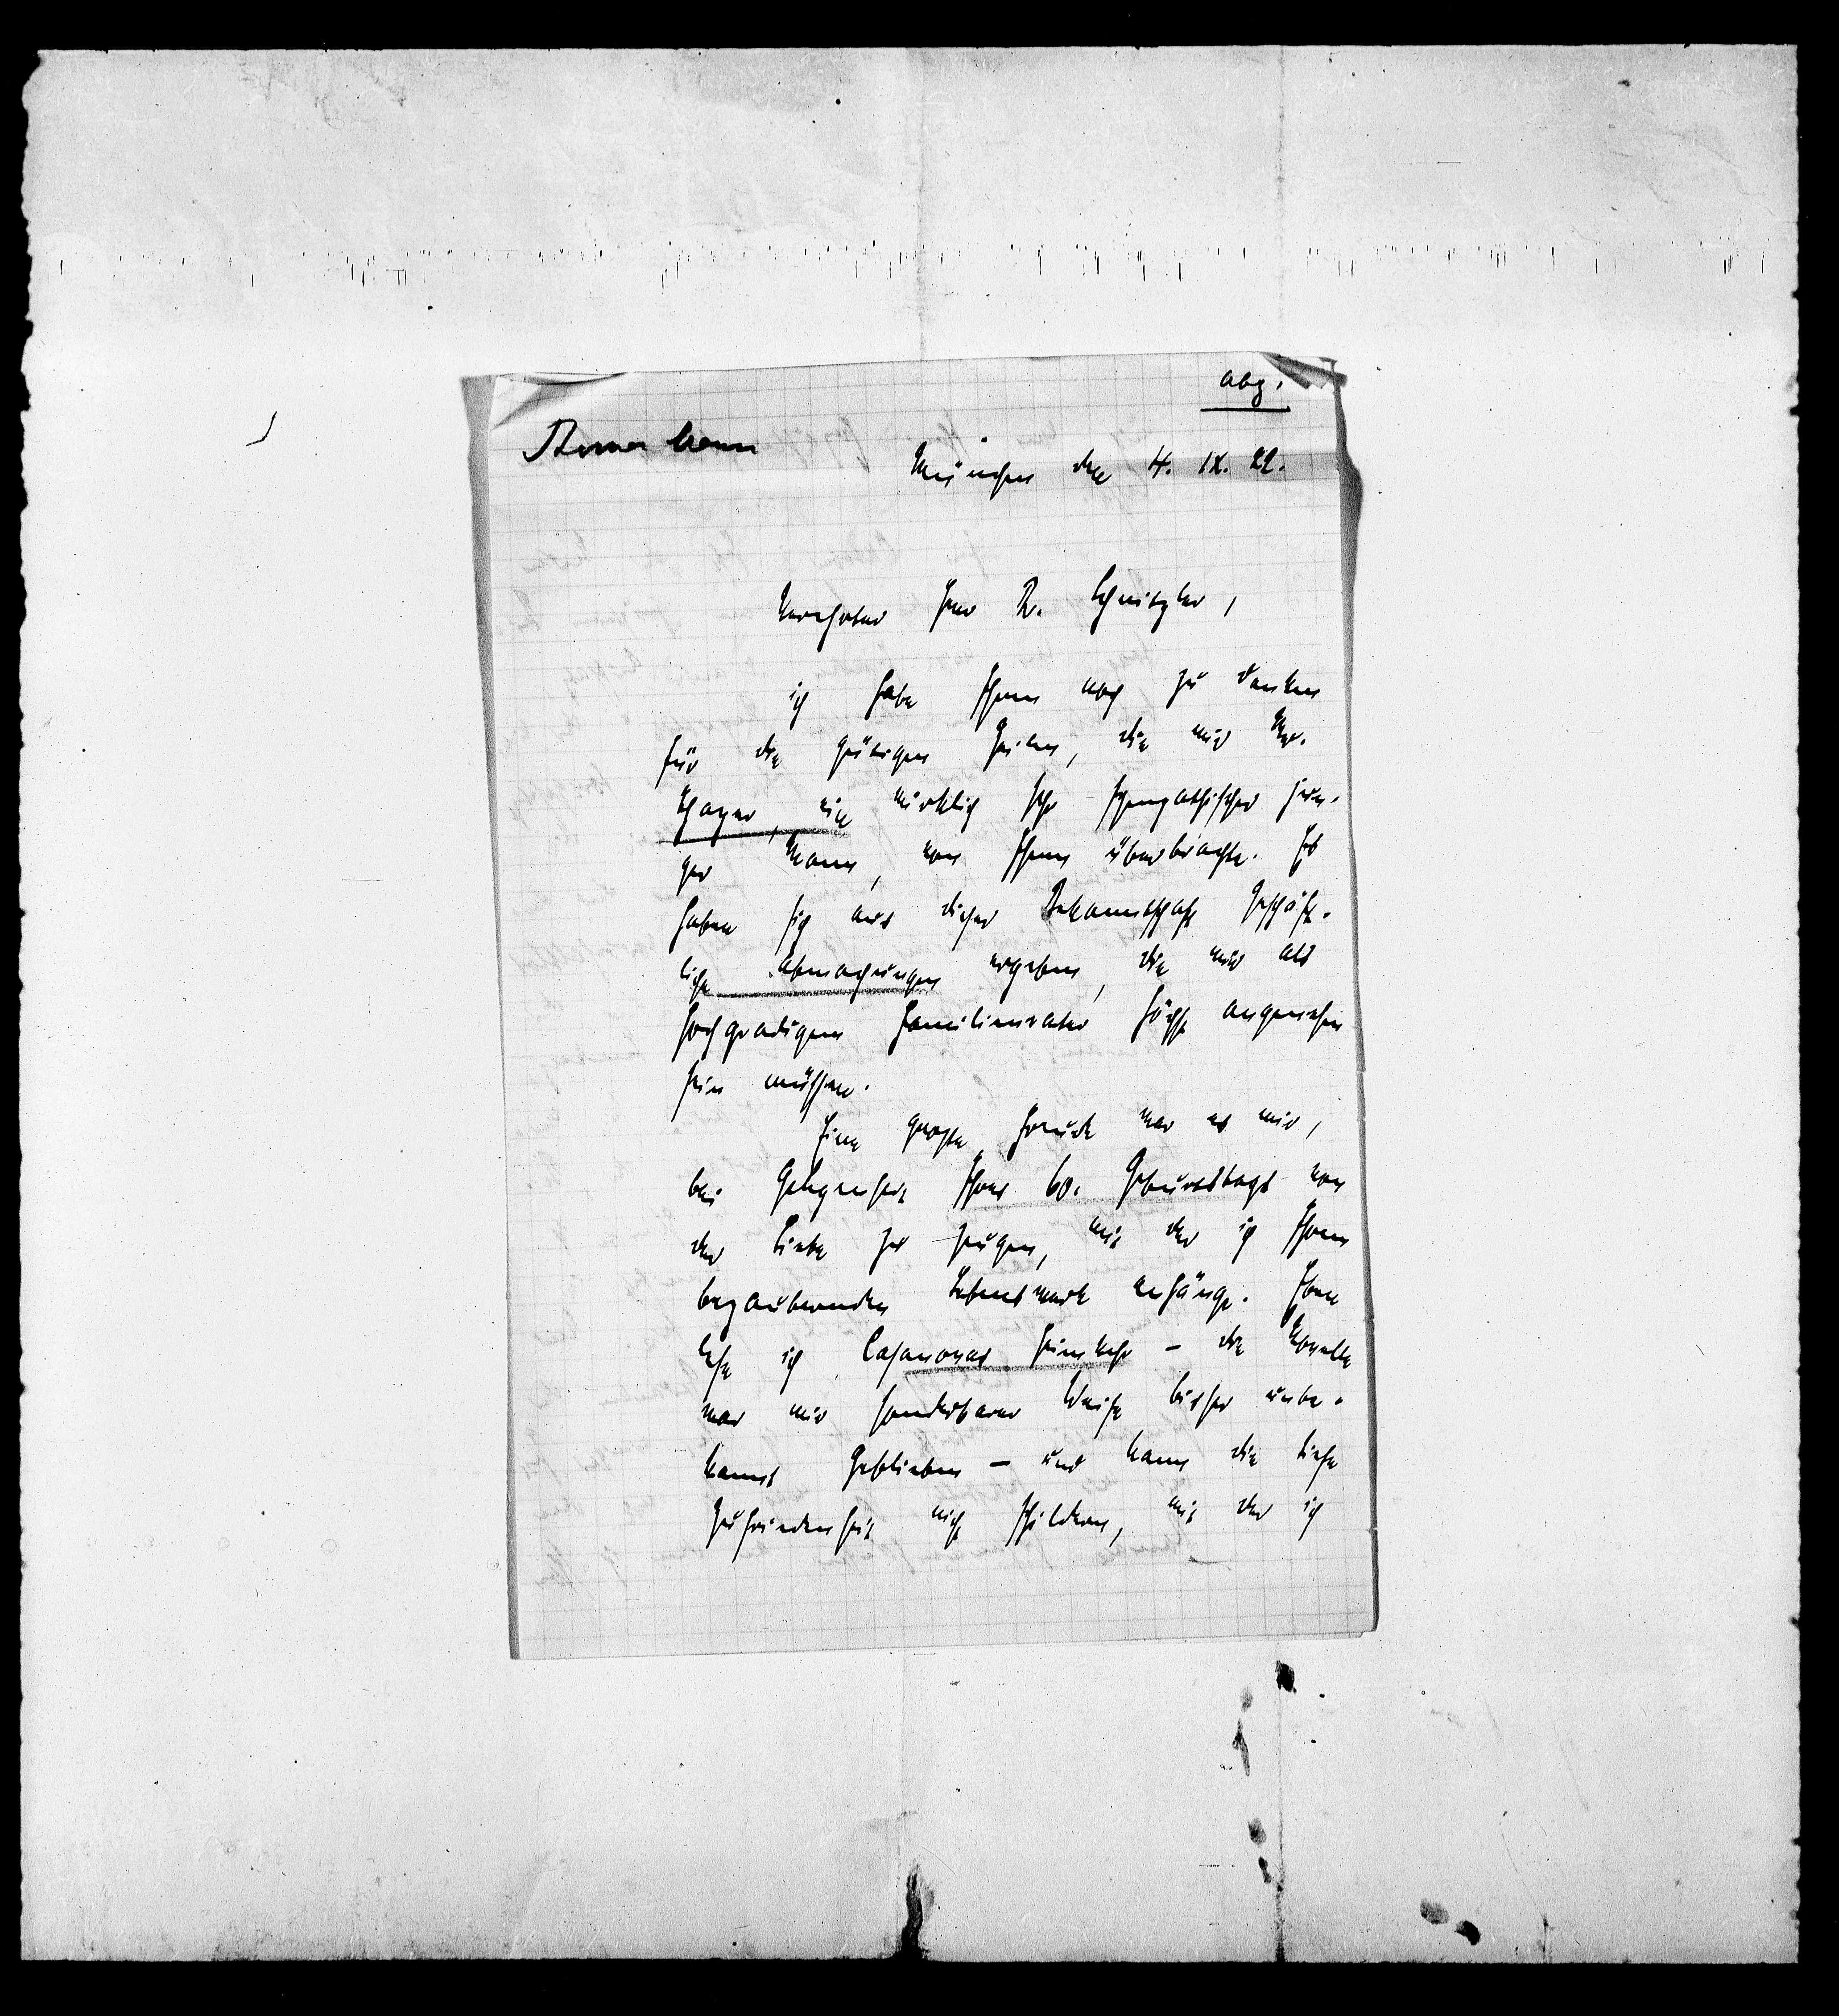 abg.
Thomas Mann
München den 4. IX. 22.
Verehrter Herr Dr. Schnitzler,
ich habe Ihnen noch zu danken
für die gütigen Zeilen, die mir Mr.
Thayer, ein wirklich sehr sympathischer jun-
ger Mann, von Ihnen überbrachte. Es
haben sich aus dieser Bekanntschaft geschäft-
liche Abmachungen ergeben, die mir als
hochgradigem Familienvater höchst angenehm
sein müssen.
Eine grosse Freude war es mir,
bei Gelegenheit Ihres 60. Geburtstags von
der Liebe zu zeugen, mit der ich Ihrem
bezaubernden Lebenswerk anhänge. Eben
lese ich Casanovas Heimkehr – die Novelle
war mir sonderbarer Weise bisher unbe-
kannt geblieben – und kann die tiefe
Zufriedenheit nicht schildern, mit der ich